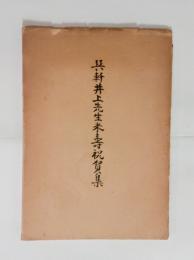 巽軒井上先生米寿祝賀集